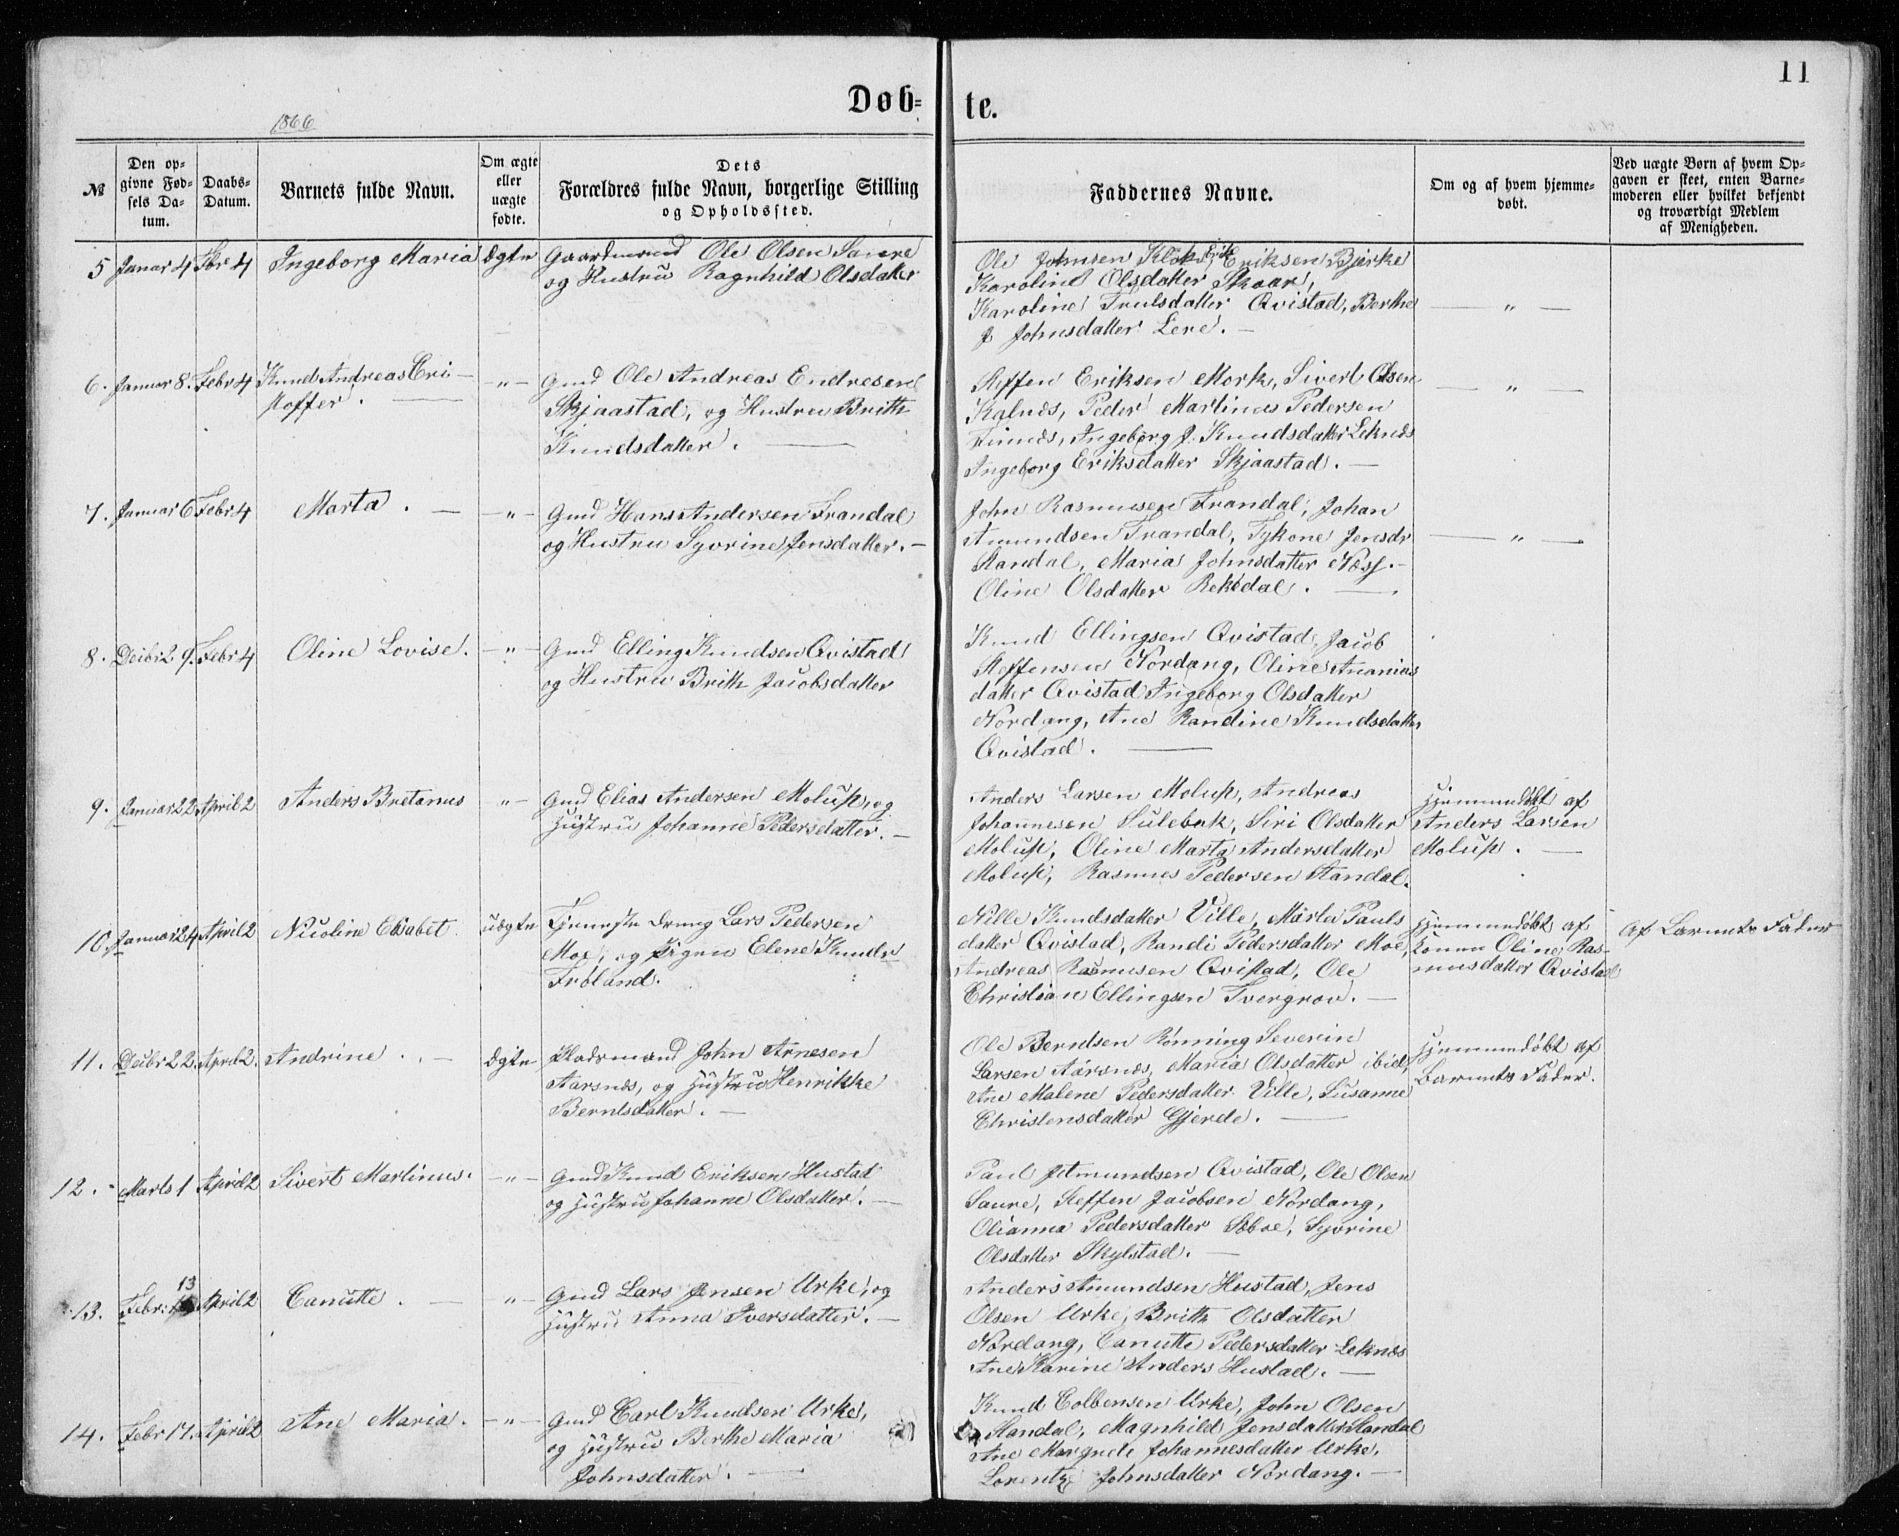 11
Døb-
te.
1866
№
Den op-
givne Fød-
sels Da-
tum.
Daabs-
Datum.
Barnets fulde Navn.
Om ægte
eller
uægte
fødte.
Dets
Forældres fulde Navn, borgerlige Stilling
og Opholdssted.
Faddernes Navne.
Om og af hvem hjemme-
døbt.
Ved uægte Børn af hvem Op-
gaven er skeet, enten Barne-
moderen eller hvilket bekjendt
og troværdigt Medlem
af Menigheden.
5 Januar 4 Fbr 4 Ingeborg Maria Ægte Gaardmand Ole Olsen Saure
og Hustru Ragnhild Olsdatter
Ole Johnsen Klok, Erik Eriksen Bjerke
Karoline Olsdatter Skaar,
Karoline Trulsdatter Qvistad, Berthe
J Johnsdatter Lere. — „ —
6. Januar 8. Febr 4 Knud Andreas Cri-
stoffer. — „ — Gmd Ole Andreas Endresen
Skjaastad, og Hustru Brith
Knudsdatter. —
Steffen Eriksen Mork, Sivert Olsen — „ —
Kalnes, Peder Martinus Pedersen
Finnes, Ingeborg J. Knudsdatter Leknes
Ingeborg Eriksdatter Skjaastad. —
7. Januar 6 Febr 4 Marta. — „ — Gmd Hans Andersen Trandal
og Hustru Syvrine Jensdatter. —
John Rasmusen Trandal, Johan
Amundsen Trandal, Tykone Jensdr — „ —
Standal, Maria Johnsdatter Næss. —
Oline Olsdatter Rekkedal. —
8. Decbr 29. Febr 4 Oline Lovise. — „ — Gmd Elling Knudsen Qvistad
og Hustru Brith Jacobsdatter
Knud Ellingsen Qvistad, Jacob
Steffensen Nordang, Oline Ananias
datter Qvistad Ingeborg Olsdatter
Nordang, Ane Randine Knudsdatter
Qvistad. —
9. Januar 22 April 2 Anders Bretanus — „ — Gmd Elias Andersen Molup, og
Hustru Johanne Pedersdatter. —
Anders Larsen Molup, Andreas
Johannesen Sulebak, Siri Olsdatter
Molup, Oline Marta Andersdatter
Molup, Rasmus Pedersen Standal.
Hjemmedøbt af
Anders Larsen
Molup. —
10. Januar 24 April 2 Nicoline Elisabet. uægte Tjeneste Dreng Lars Pedersen
Moe, og Pigen Elene Knuds
Frøland.
Nille Knudsdatter Ville, Märta Pauls
datter Qvistad, Randi Pedersdatter Moe,
Andreas Rasmusen Qvistad, Ole
Christian Ellingsen Tvergrov. —
Hjemmedøbt af
Konen Oline Ras-
musdatter Qvistad
Af Barnets Fader
11. Decbr 22. April 2. Andrine. — Ægte Pladsmand John Arnesen
Aarsnes, og Hustru Henrikke
Berntsdatter. —
Ole Berndsen Rønning Severin
Larsen Aarsnes, Maria Olsdatter ibid,
Ane Malene Pedersdatter Ville, Susanne
Christensdatter Gjerde. —
Hjemmedøbt af
Barnets Fader.
12. Marts 1 April 2 Sivert Martinus. — „ — Gmd Knud Eriksen Hustad
og Hustru Johanne Olsdatter. —
Paul Jetmundsen Qvistad, Ole Olsen
Saure, Steffen Jacobsen Nordang,
Olianna Pedersdatter Søboe, Syvrine
Olsdatter Skylstad. —
13. Febr: 13 April 2 Canutte. — „ — Gmd Lars Jensen Urke, og
Hustru Anna Iversdatter. —
Anders Amundsen Hustad, Jens
Olsen Urke, Brith Olsdatter
Nordang, Canutte Pedersdatter Leknes
Ane Karine Anders Hustad. —
14. Febr 17. April 2 Ane Maria. — „ — Gmd Carl Knudsen Urke,
og Hustru Berthe Maria
Johnsdatter. —
Knud Colbensen Urke, John Olsen
Standal, Magnhild Jensdatter Standal
Ane Margrete Johannesdatter Urke,
Lorentz Johnsdatter Nordang. —